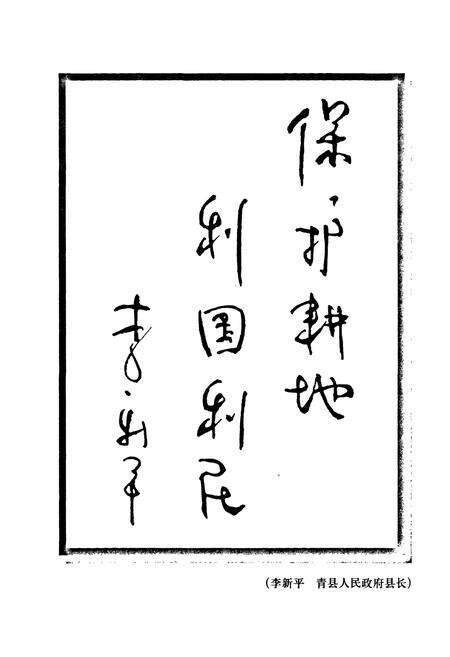 保护耕地
利国利民
李新平
(李新平　青县人民政府县长)